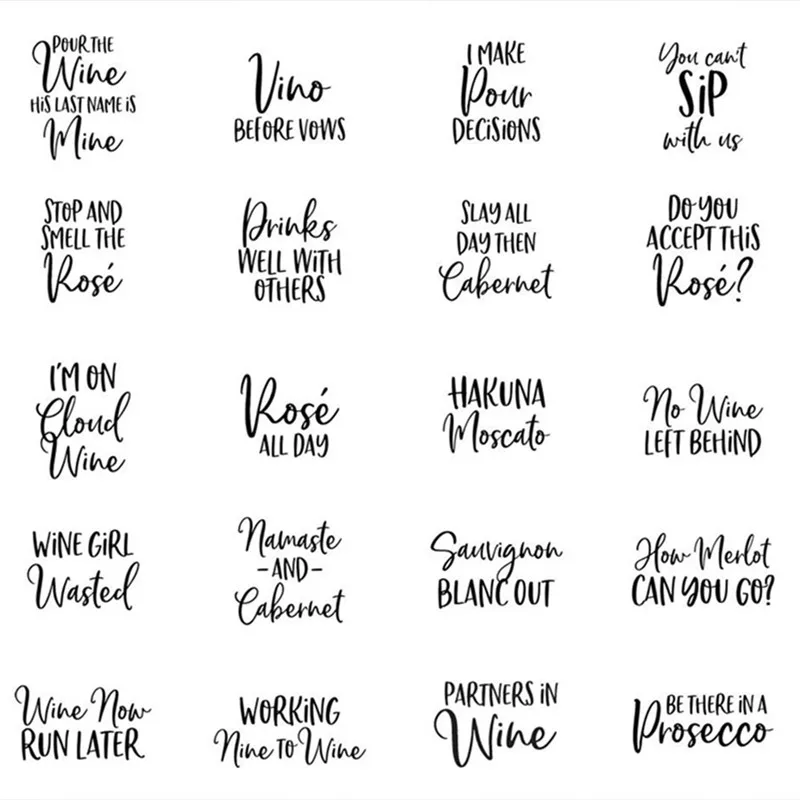 POUR THE
Wine
HIS LAST NAME IS
Mine
Vino
BEFORE VOWS
I MAKE
Pour
DECISIONS
You can't
SIP
with us
STOP AND
SMELL THE
Rosé
Drinks
WELL WITH
OTHERS
SLAY ALL
DAY THEN
Cabernet
DO YOU
ACCEPT THIS
Rosé?
I'M ON
Cloud
Wine
Rosé
ALL DAY
HAKUNA
Moscato
No Wine
LEFT BEHIND
WINE GIRL
Wasted
Namaste
-AND-
Cabernet
Sauvignon
BLANC OUT
How Merlot
CAN YOU GO?
Wine Now
RUN LATER
WORKING
Nine TO Wine
PARTNERS IN
Wine
BE THERE IN A
Prosecco